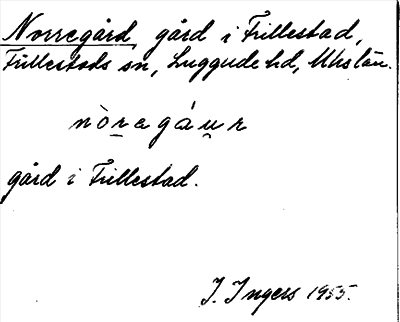 Norregård, gård i Frillestad,
Frillestads sn, Luggude hd, Mhs län.
nòregáur
gård i Frillestad.
I. Ingers 1955.